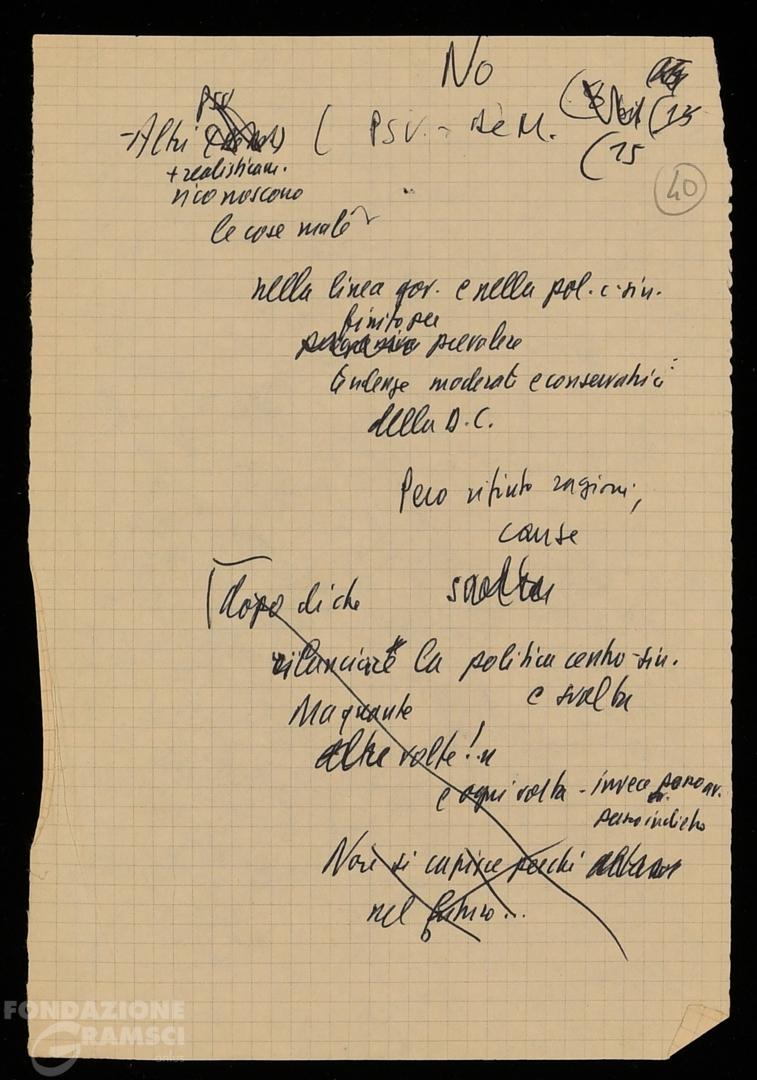 No
PSU
- Altri ( PSU. - De M. (15
(15
+ realisticam.
40
riconoscono
le cose male
nella linea gov. e nella pol. c-sin.
finito per
prevalere
tendenze moderate e conservatrici
della D.C.
Però rifiuto ragioni,
cause
svolta
dopo di che
rilanciare la politica centro-sin.
e svolta
Ma quante
altre volte!
e ogni volta - invece passo av.
passo indietro
Non si capisce perché
nel futuro...
FONDAZIONE
GRAMSCI
onlus